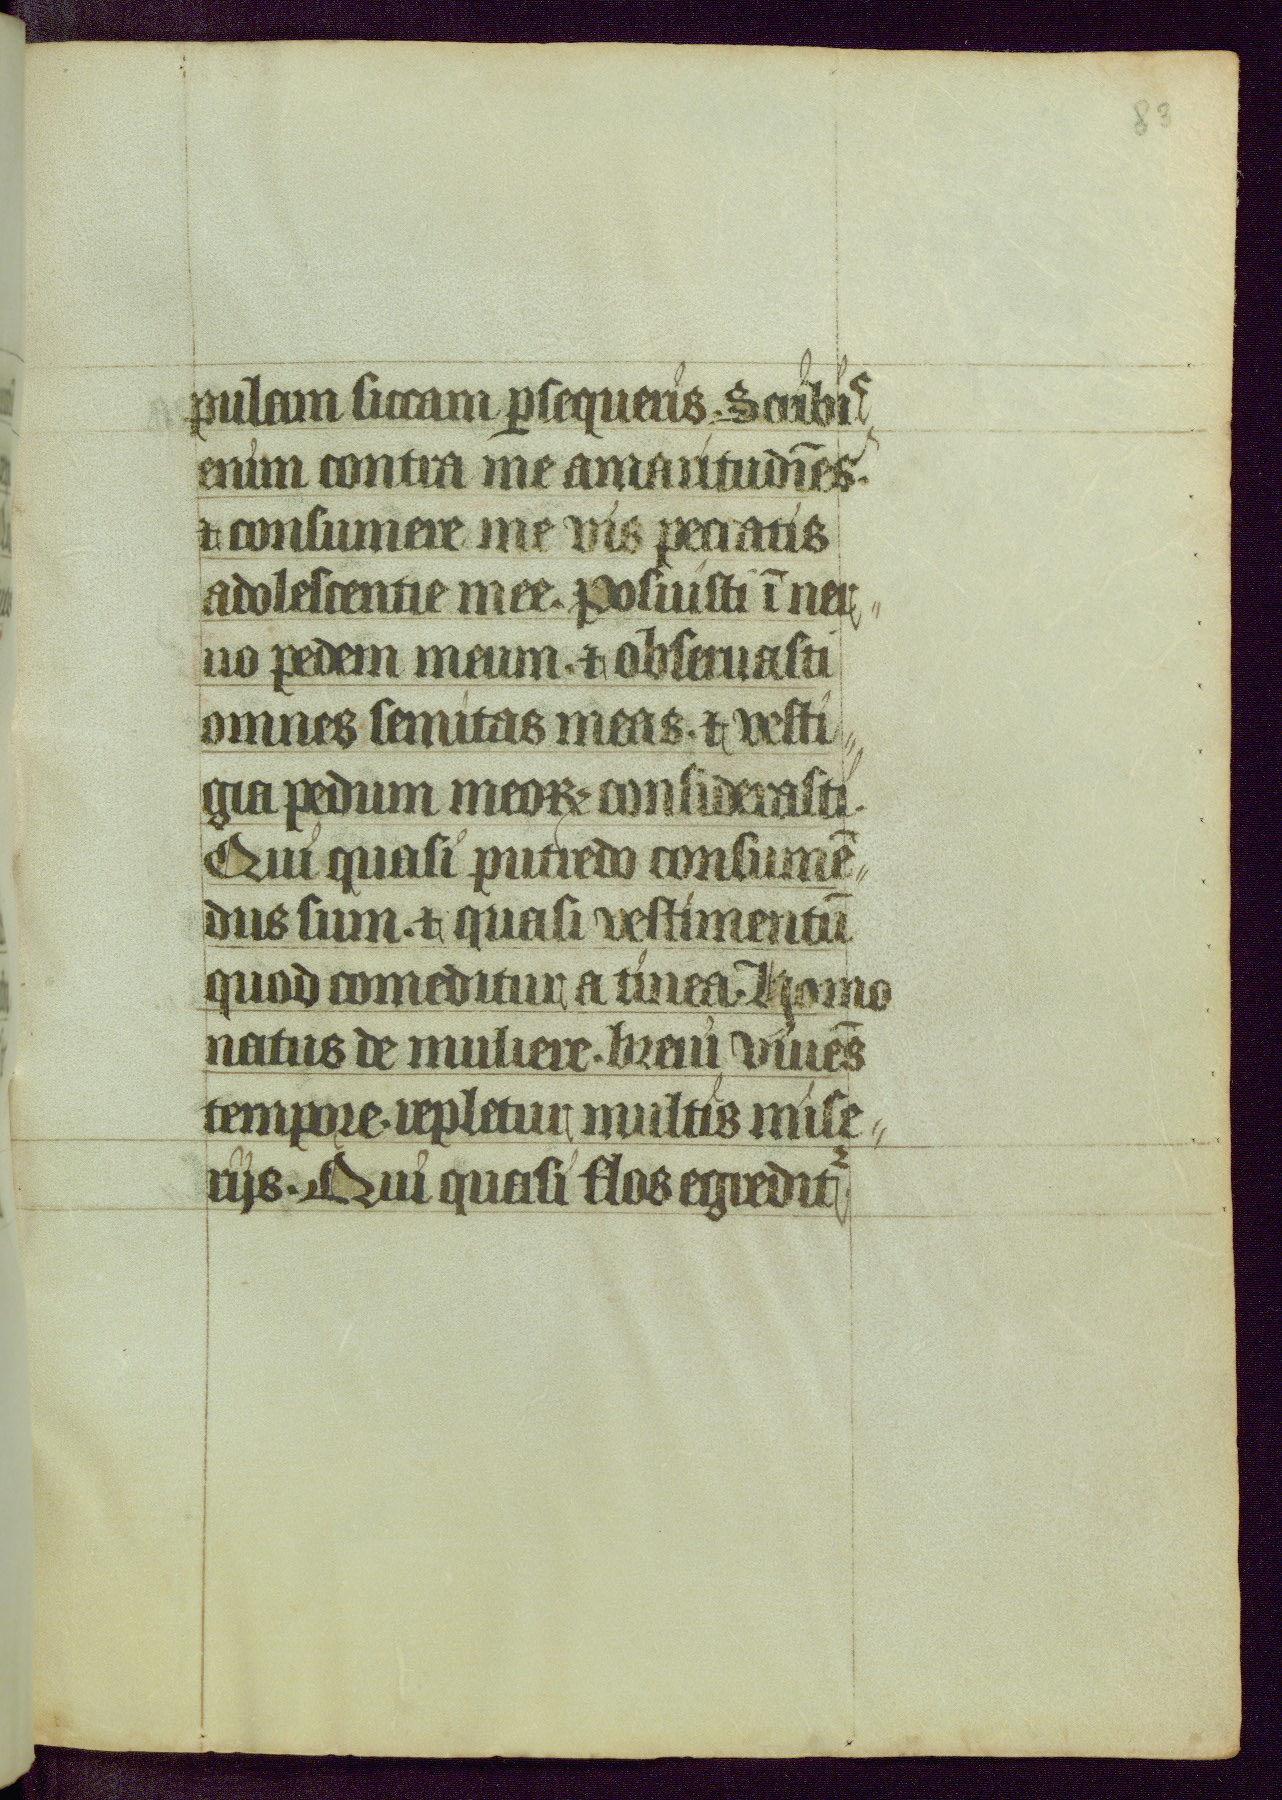 83
pulam siccam ꝑsequeris. Scribis
enim contra me amaritudīes.
⁊ consumere me vis peccatis
adolescentie mee. Posuisti ī ner〃
uo pedem meum. ⁊ obseruasti
omnes semitas meas. ⁊ vesti〃
gia pedum meoꝝ considerasti.
Qui quasi putredo consumē〃
dus sum. ⁊ quasi vestimentū
quod comeditur a tinea. Homo
natus de muliere. breui viuēs
tempore. repletur multis mise〃
rijs. Qui quasi flos egredit᷑